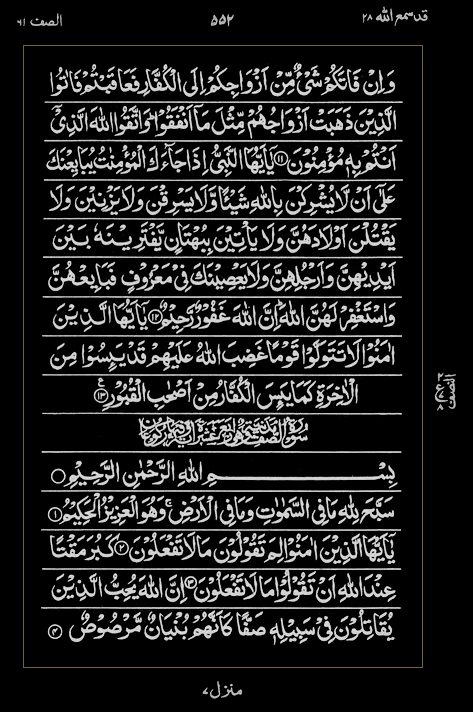 قد سمع الله ۲۸
۵۵۲
الصف ۶۱
وَاِنْ فَاتَكُمْ شَیْءٌ مِّنْ اَزْوَاجِكُمْ اِلَی الْكُفَّارِ فَعَاقَبْتُمْ فَاٰتُوا
الَّذِیْنَ ذَهَبَتْ اَزْوَاجُهُمْ مِّثْلَ مَاۤ اَنْفَقُوْا ؕ وَاتَّقُوا اللّٰهَ الَّذِیْۤ
اَنْتُمْ بِهٖ مُؤْمِنُوْنَ ﴿۱۱﴾ یٰۤاَیُّهَا النَّبِیُّ اِذَا جَآءَكَ الْمُؤْمِنٰتُ یُبَایِعْنَكَ
عَلٰۤی اَنْ لَّا یُشْرِكْنَ بِاللّٰهِ شَیْئًا وَّلَا یَسْرِقْنَ وَلَا یَزْنِیْنَ وَلَا
یَقْتُلْنَ اَوْلَادَهُنَّ وَلَا یَاْتِیْنَ بِبُهْتَانٍ یَّفْتَرِیْنَهٗ بَیْنَ
اَیْدِیْهِنَّ وَاَرْجُلِهِنَّ وَلَا یَعْصِیْنَكَ فِیْ مَعْرُوْفٍ فَبَایِعْهُنَّ
وَاسْتَغْفِرْ لَهُنَّ اللّٰهَ ؕ اِنَّ اللّٰهَ غَفُوْرٌ رَّحِیْمٌ ﴿۱۲﴾ یٰۤاَیُّهَا الَّذِیْنَ
اٰمَنُوْا لَا تَتَوَلَّوْا قَوْمًا غَضِبَ اللّٰهُ عَلَیْهِمْ قَدْ یَىِٕسُوْا مِنَ
الْاٰخِرَةِ كَمَا یَىِٕسَ الْكُفَّارُ مِنْ اَصْحٰبِ الْقُبُوْرِ ﴿۱۳﴾
بِسْمِ اللّٰهِ الرَّحْمٰنِ الرَّحِیْمِ
سَبَّحَ لِلّٰهِ مَا فِی السَّمٰوٰتِ وَمَا فِی الْاَرْضِ ۚ وَهُوَ الْعَزِیْزُ الْحَكِیْمُ ﴿۱﴾
یٰۤاَیُّهَا الَّذِیْنَ اٰمَنُوْا لِمَ تَقُوْلُوْنَ مَا لَا تَفْعَلُوْنَ ﴿۲﴾ كَبُرَ مَقْتًا
عِنْدَ اللّٰهِ اَنْ تَقُوْلُوْا مَا لَا تَفْعَلُوْنَ ﴿۳﴾ اِنَّ اللّٰهَ یُحِبُّ الَّذِیْنَ
یُقَاتِلُوْنَ فِیْ سَبِیْلِهٖ صَفًّا كَاَنَّهُمْ بُنْیَانٌ مَّرْصُوْصٌ ﴿۴﴾
منزل ۷